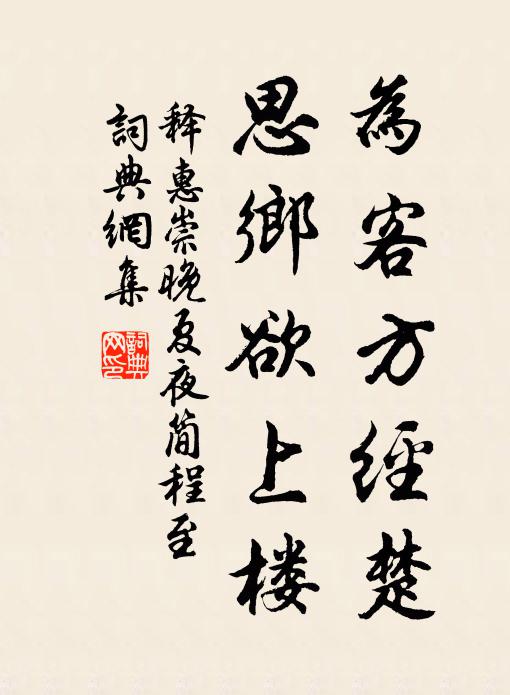 為客方經楚
思鄉欲上楼
释惠崇晚夏夜简程至
詞典網集
詞典网印